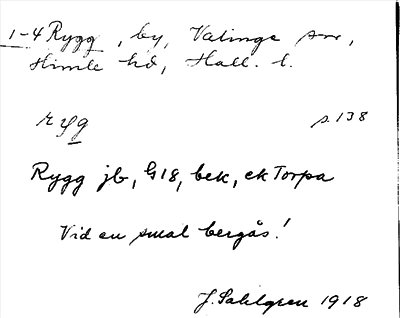 1-4 Rygg, by, Valinge sn,
Himle hd, Hall. l.
ryg s. 138
Rygg jb, G18, bek, ek Torpa
Vid en smal bergås!
J. Sahlgren 1918